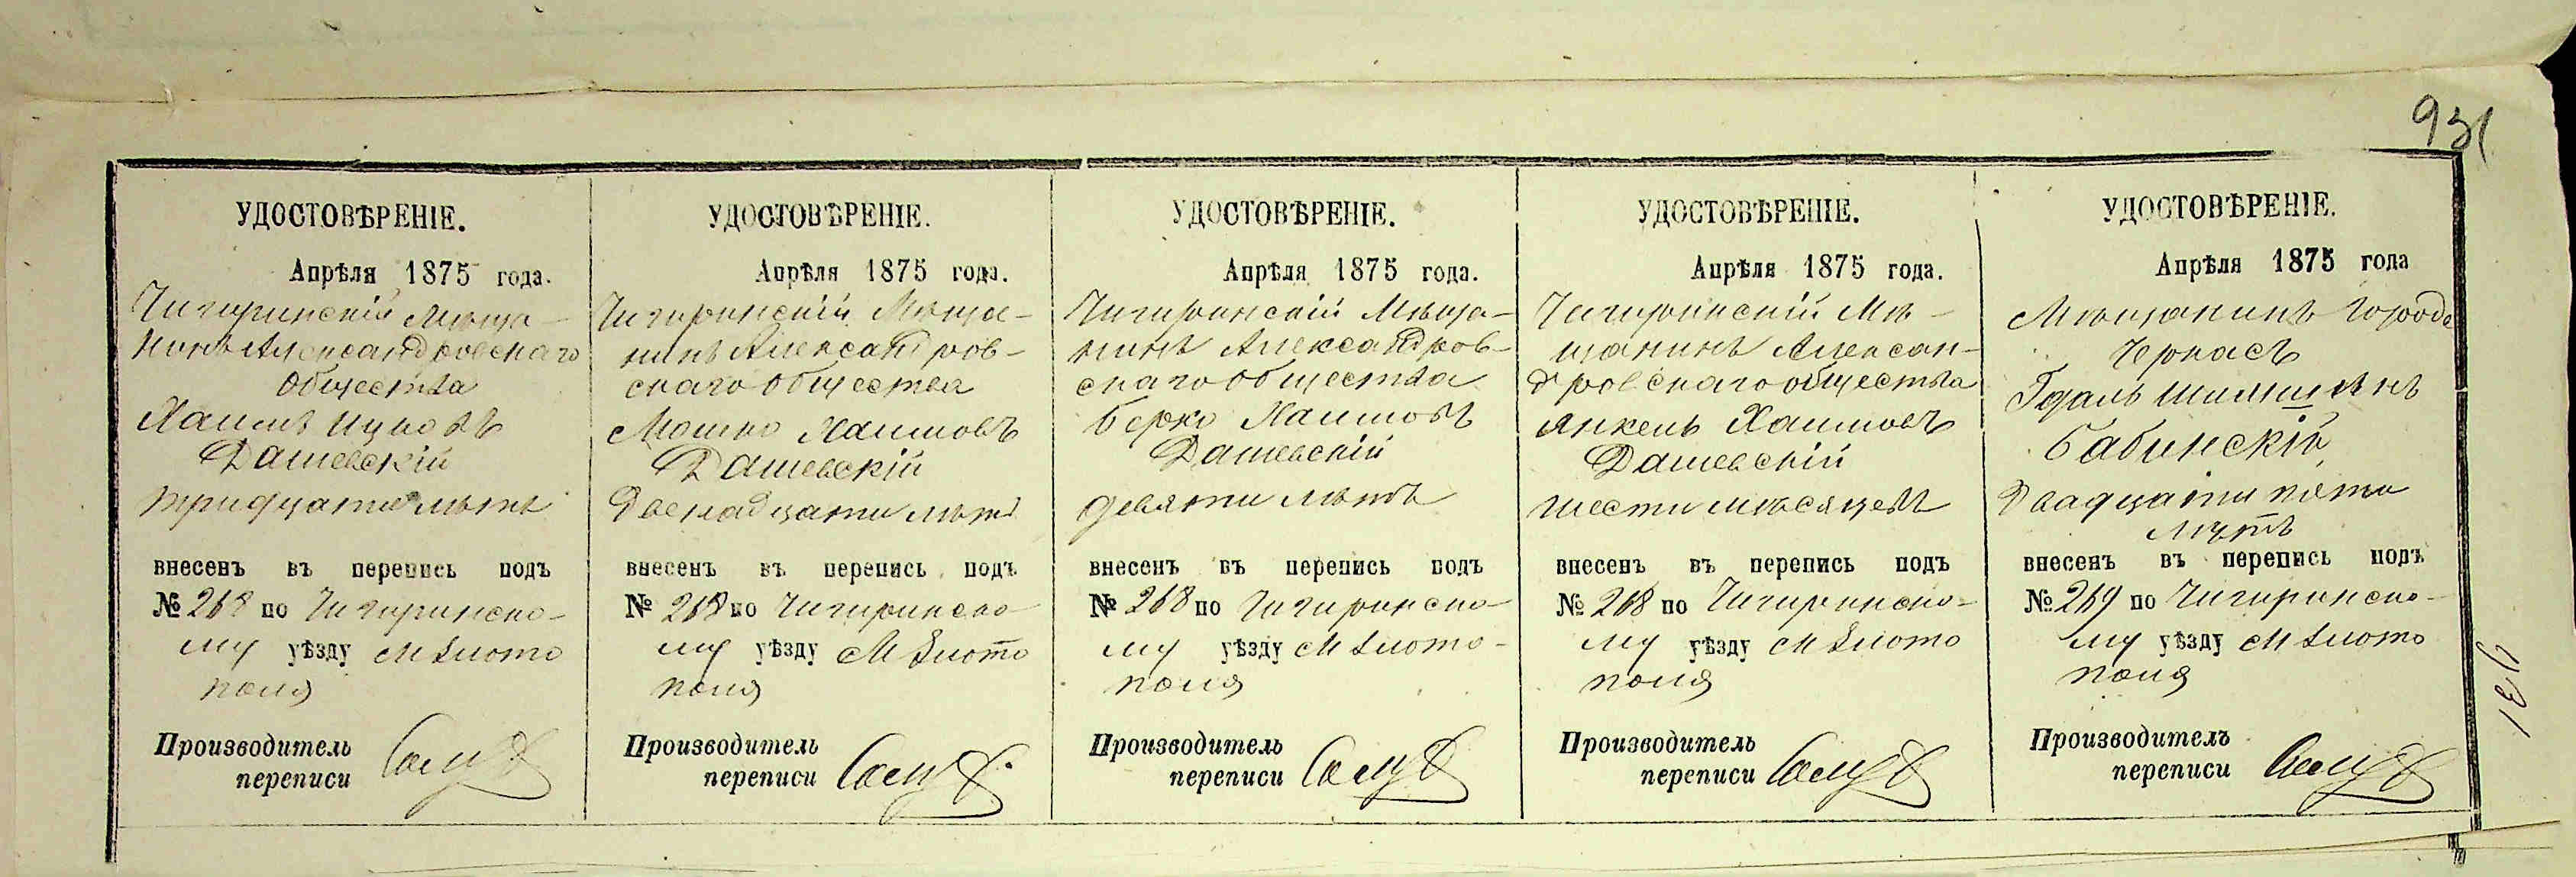 931
УДОСТОВѢРЕНІЕ.
Апрѣля 1875 года.
Чигиринскій мѣща-
нинъ Александровскаго
общества
Хаимъ Ицковъ
Дашевскій
тридцати лѣтъ
внесенъ въ перепись подъ
№ 268 по Чигиринско-
му уѣзду М Злото
поля
Производитель
переписи
УДОСТОВѢРЕНІЕ.
Апрѣля 1875 года.
Чигиринскій Мѣща-
нинъ Александров-
скаго общества
Мошко Хаимовъ
Дашевскій
Двенадцати лѣтъ
внесенъ въ перепись подъ
№ 268 по Чигиринско
му уѣзду М Злото
поля
Производитель
переписи
УДОСТОВѢРЕНІЕ.
Апрѣля 1875 года.
Чигиринскій Мѣща-
нинъ Александров-
скаго общества
Берко Хаимовъ
Дашевскій
девяти лѣтъ
внесенъ въ перепись подъ
№ 268 по Чигиринско-
му уѣзду М Злото-
поля
Производитель
переписи
УДОСТОВѢРЕНІЕ.
Апрѣля 1875 года.
Чигиринскій Мѣ-
щанинъ Алексан-
дровскаго общества
Янкель Хаимовъ
Дашевскій
шести мѣсяцевъ
внесенъ въ перепись подъ
№ 268 по Чигиринско-
му уѣзду М Злото
поля
Производитель
переписи
УДОСТОВѢРЕНІЕ.
Апрѣля 1875 года
Мѣщанинъ Города
Черкасъ
Гдаль
Бабинскій
Двадцати пяти
лѣтъ
внесенъ въ перепись подъ
№ 269 по Чигиринско-
му уѣзду М Злото
поля
Производитель
переписи
931